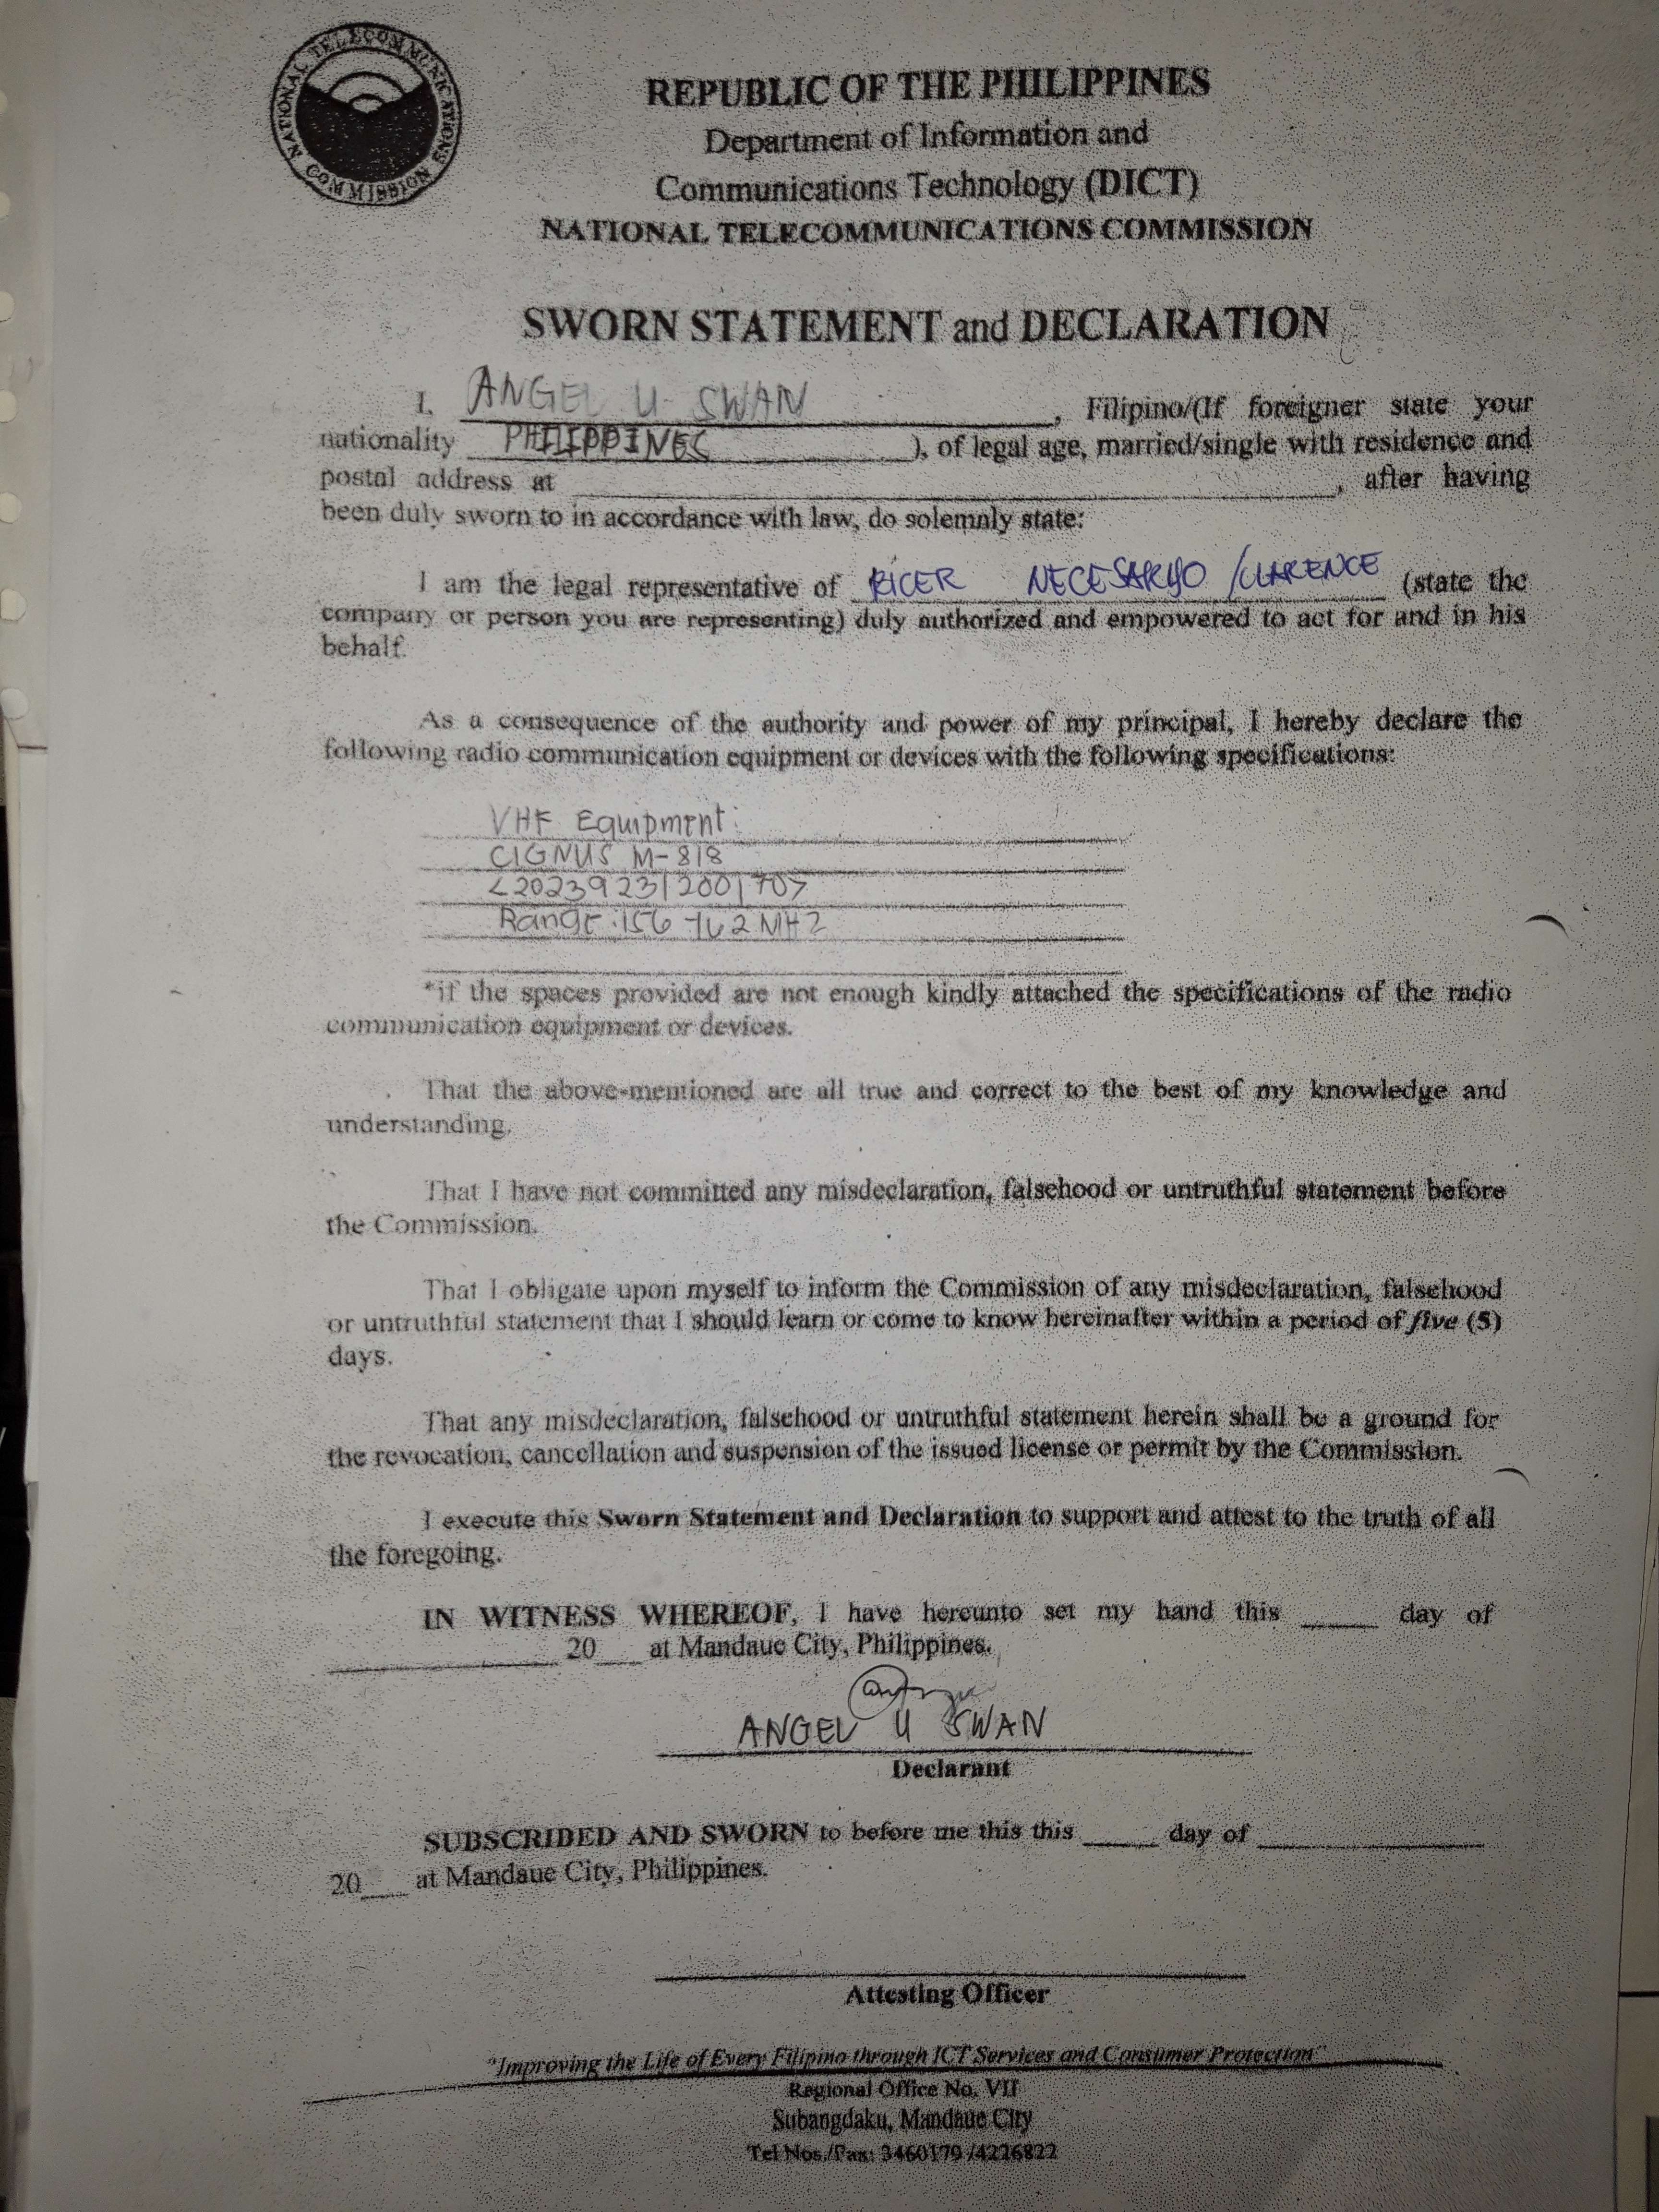 NATIONAL TELECOMMUNICATIONS COMMISSION
REPUBLIC OF THE PHILIPPINES
Department of Information and
Communications Technology (DICT)
NATIONAL TELECOMMUNICATIONS COMMISSION
SWORN STATEMENT and DECLARATION
I, ANGEL U SWAN, Filipino/(If foreigner state your
nationality PHILIPPINES), of legal age, married/single with residence and
postal address at ____, after having
been duly sworn to in accordance with law, do solemnly state:
I am the legal representative of RICER NECESARYO /CLARENCE (state the
company or person you are representing) duly authorized and empowered to act for and in his
behalf.
As a consequence of the authority and power of my principal, I hereby declare the
following radio communication equipment or devices with the following specifications:
VHF Equipment:
CIGNUS M-818
<202392312001707
Range: 156-162 MHz
*if the spaces provided are not enough kindly attached the specifications of the radio
communication equipment or devices.
That the above-mentioned are all true and correct to the best of my knowledge and
understanding.
That I have not committed any misdeclaration, falsehood or untruthful statement before
the Commission.
That I obligate upon myself to inform the Commission of any misdeclaration, falsehood
or untruthful statement that I should learn or come to know hereinafter within a period of five (5)
days.
That any misdeclaration, falsehood or untruthful statement herein shall be a ground for
the revocation, cancellation and suspension of the issued license or permit by the Commission.
I execute this Sworn Statement and Declaration to support and attest to the truth of all
the foregoing.
IN WITNESS WHEREOF, I have hereunto set my hand this ____ day of
____ 20__ at Mandaue City, Philippines.
ANGEL U SWAN
Declarant
SUBSCRIBED AND SWORN to before me this this ____ day of ____
20__ at Mandaue City, Philippines.
Attesting Officer
"Improving the Life of Every Filipino through ICT Services and Consumer Protection"
Regional Office No. VII
Subangdaku, Mandaue City
Tel Nos./Fax: 3460179 /4226822